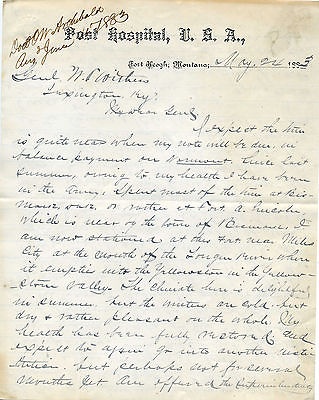 Post Hospital, U. S. A.,
Fort Keogh, Montana, May. 24 1883
Genl W.
Lexington Ky:
My dear Genl
I expect the time
is quite near when my note will be due. in
balance payment on Vermont. Since last
summer, owing to my health I have been
in the Army. Spent most of the time at Bis-
marck, or rather at Fort A. Lincoln,
which is near by the town of Bismarck. I
am now stationed at this Fort near Miles
City at the mouth of the Tongue River where
it empties into the Yellowstone in the Yellow-
stone Valley. The climate here is delightful
in summer. but the winters are cold. but
dry & rather pleasant on the whole. My
health has been fully restored and
expect to again go into another insti-
tution. but perhaps not for several
months yet. Am offered the